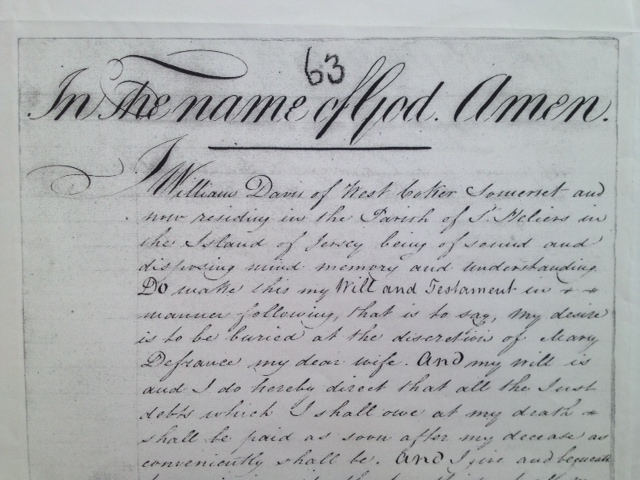 63
In The name of God. Amen.
I William Davis of West Coker Somerset and
now residing in the Parish of St. Heliers in
the Island of Jersey being of sound and
disposing mind memory and understanding
Do make this my Will and Testament in
manner following, that is to say, my desire
is to be buried at the discretion of Mary
Defrance my dear wife. And my will is
and I do hereby direct that all the Just
debts which I shall owe at my death
shall be paid as soon after my decease as
conveniently shall be. And I give and bequeath